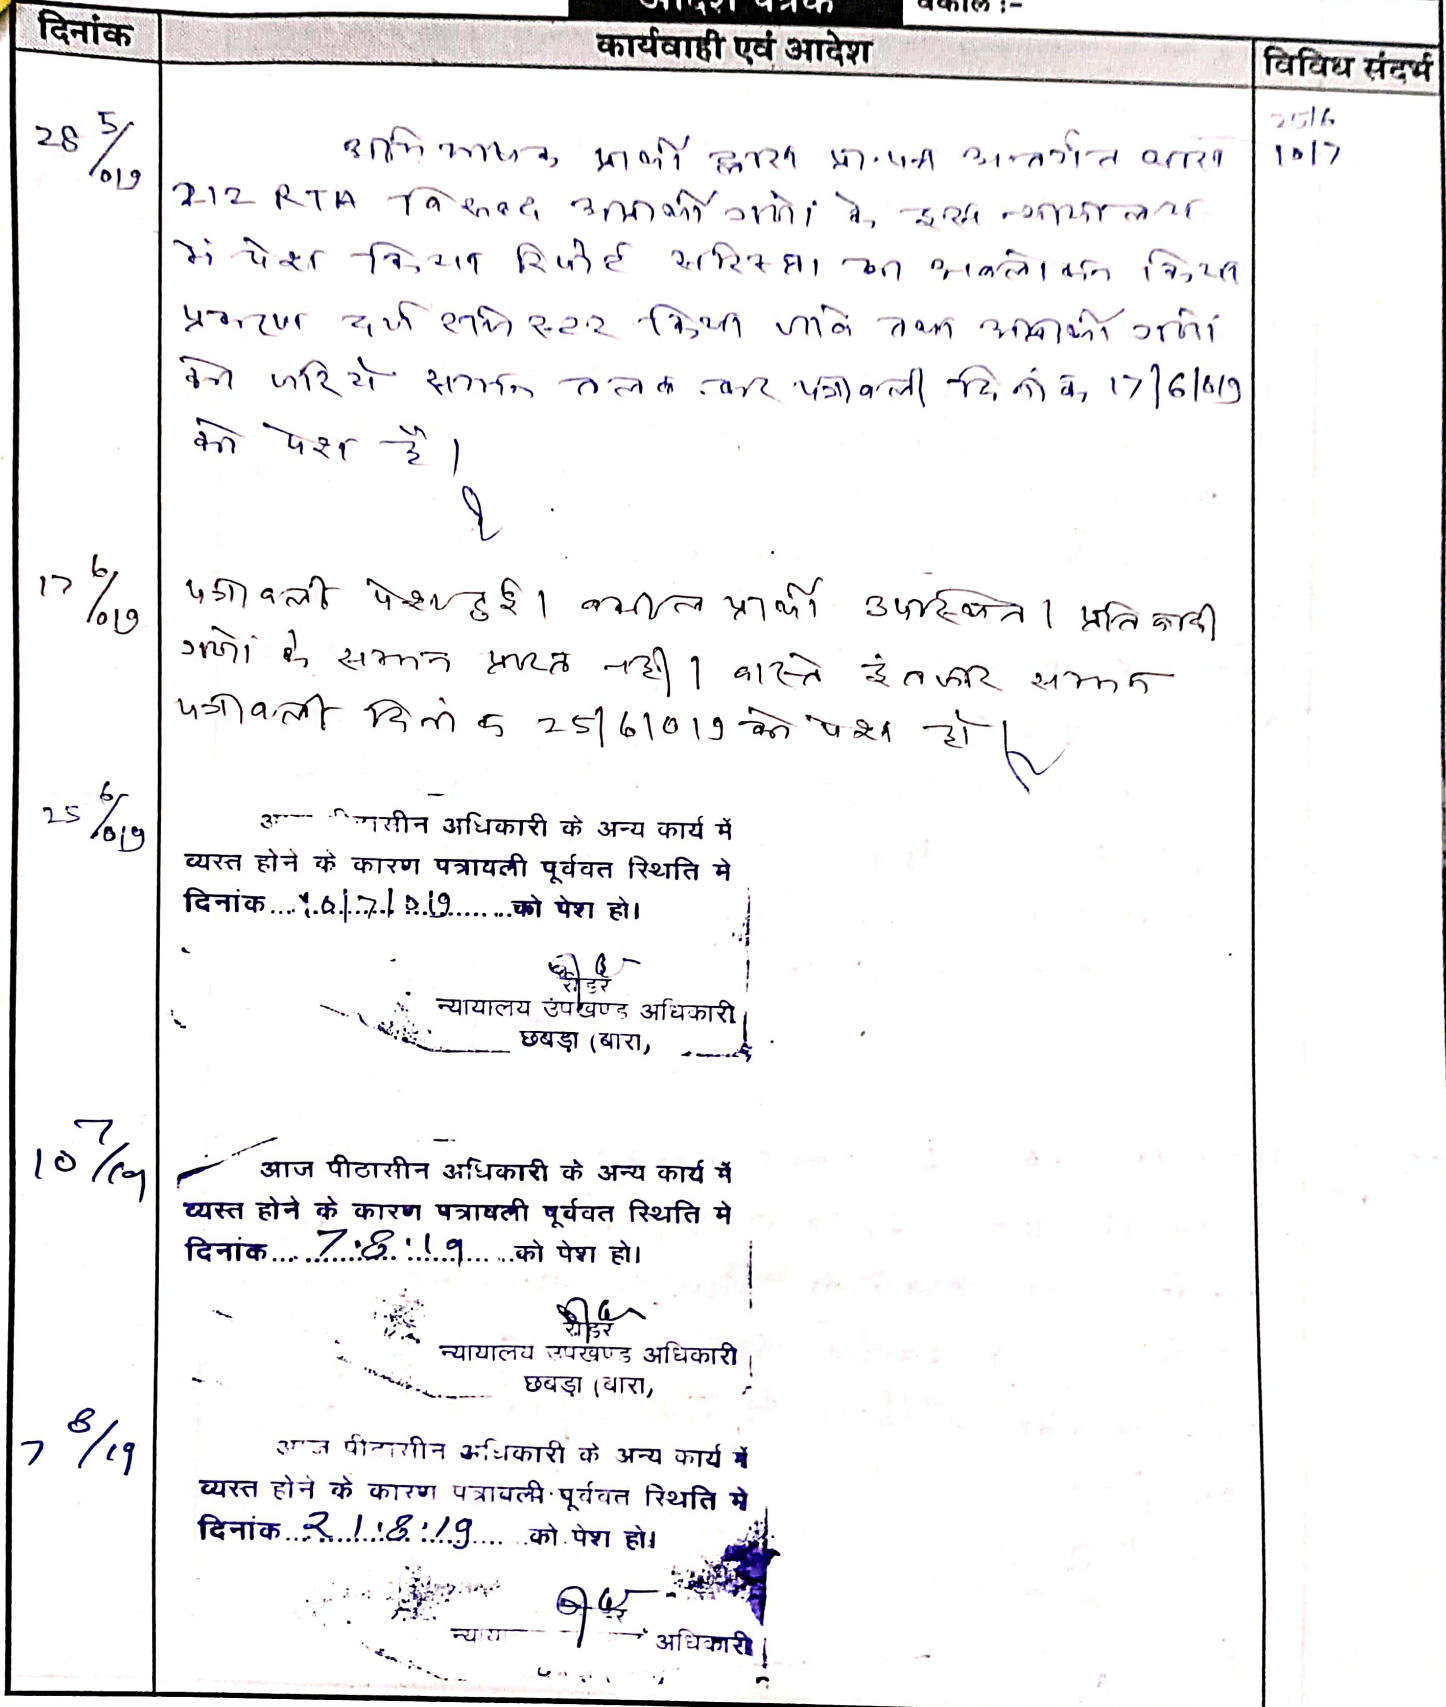 आदेश पत्रक
वकील :-
दिनांक
कार्यवाही एवं आदेश
विविध संदर्भ
28 5/019
25/6
10/7
अभिभाषक प्रार्थी द्वारा प्रा.पत्र अन्तर्गत धारा
212 RTA विरूद्ध अप्रार्थी गणों के इस न्यायालय
में पेश किया रिपोर्ट सरिस्ता का अवलोकन किया
प्रकरण दर्ज रजिस्टर किया जावे तथा अप्रार्थी गणों
को जरिये सम्मन तलब कर पत्रावली दिनांक 17/6/019
को पेश हो।
17 6/019
पत्रावली पेश हुई। वकील प्रार्थी उपस्थित। प्रतिवादी
गणों के सम्मन प्राप्त नही। वास्ते इंतजार सम्मन
पत्रावली दिनांक 25/6/019 को पेश हो।
25 6/019
पीठासीन अधिकारी के अन्य कार्य में
व्यस्त होने के कारण पत्रावली पूर्ववत स्थिति मे
दिनांक....10/7/019.......को पेश हो।
रीडर
न्यायालय उपखण्ड अधिकारी
छबड़ा (बारा,
10 7/19
आज पीठासीन अधिकारी के अन्य कार्य में
व्यस्त होने के कारण पत्रावली पूर्ववत स्थिति मे
दिनांक....7.8.19.....को पेश हो।
रीडर
न्यायालय उपखण्ड अधिकारी
छबड़ा (बारा,
7 8/19
आज पीठासीन अधिकारी के अन्य कार्य में
व्यस्त होने के कारण पत्रावली पूर्ववत स्थिति मे
दिनांक..21.8.19.....को पेश हो।
अधिकारी